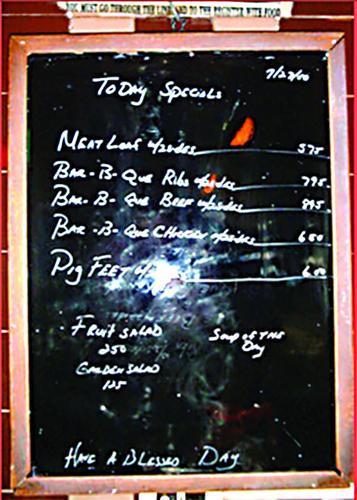 YOU MUST GO THROUGH THE LINE AND TO THE REGISTER WITH FOOD
7/27/00
Today Specials
Meat Loaf w/sides 575
Bar-B-Que Ribs w/sides 795
Bar-B-Que Beef w/sides 895
Bar-B-Que Chicken w/sides 650
Pig Feet w/ 650
Fruit Salad
250
Soup of the
Day
Garden Salad
125
Have A Blessed Day